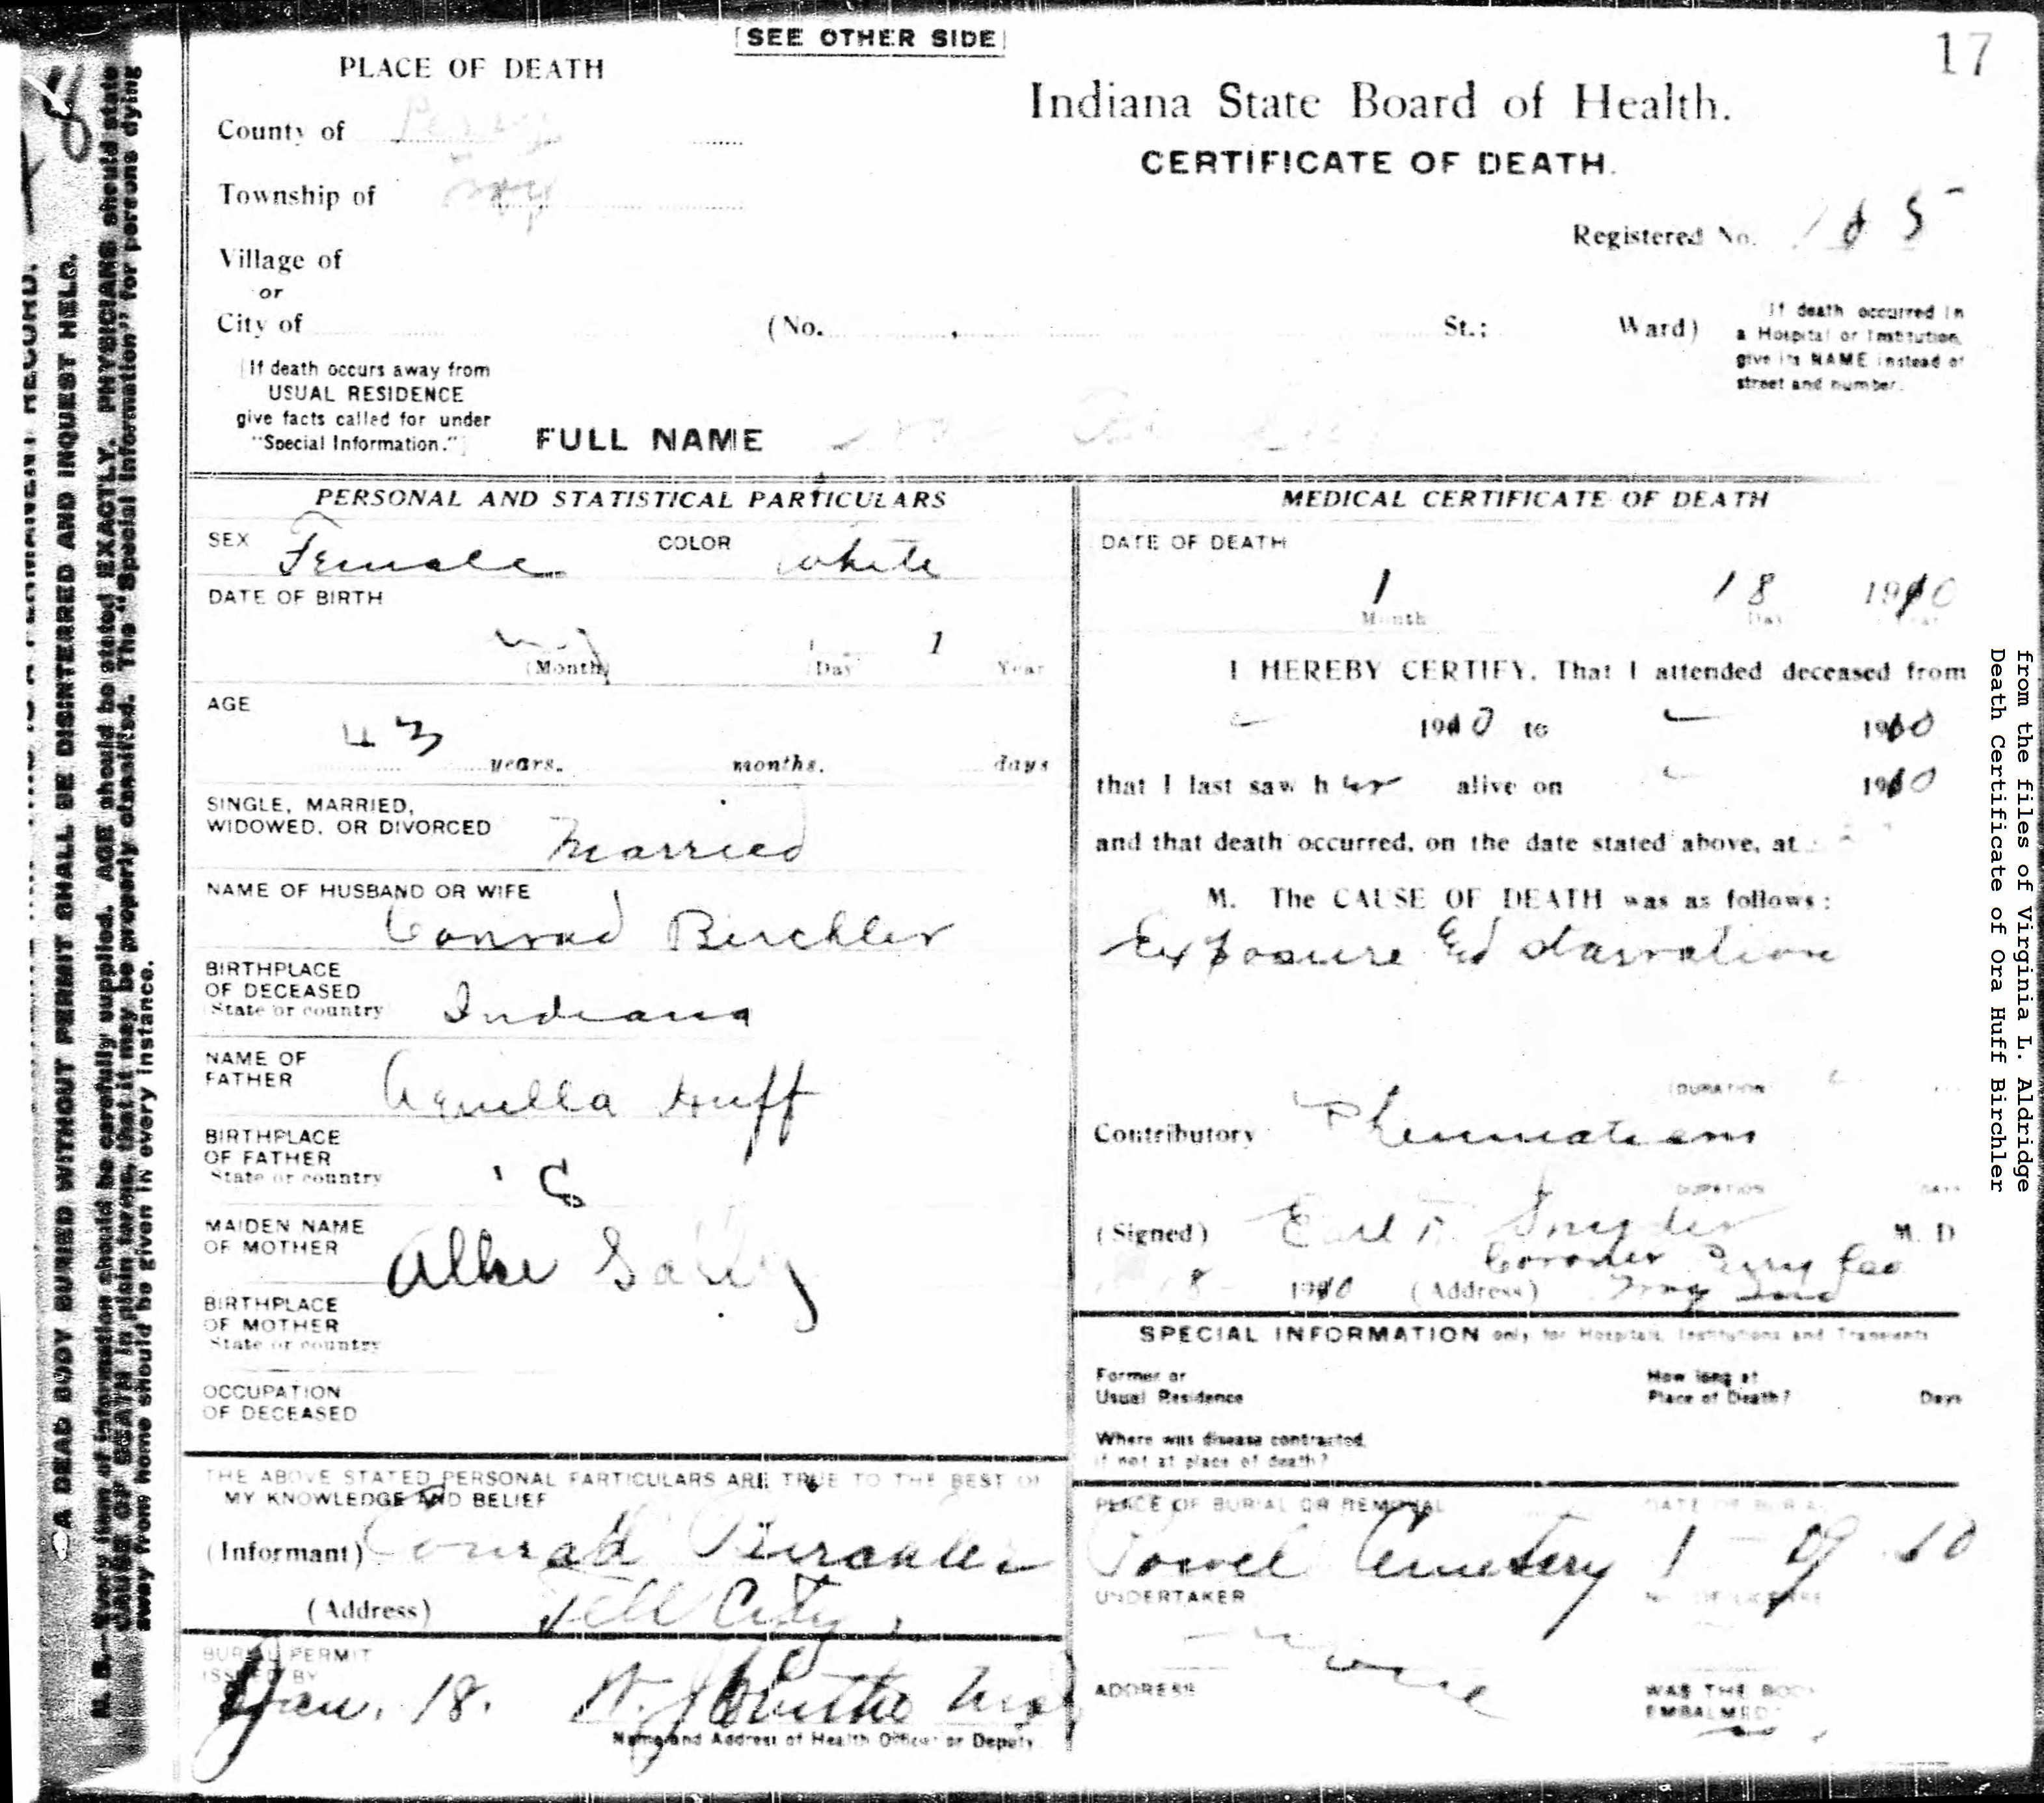 [SEE OTHER SIDE]
17
PLACE OF DEATH
Indiana State Board of Health.
CERTIFICATE OF DEATH.
County of Perry
Township of Troy
Registered No. 105
Village of
or
City of (No. , St.; Ward)
If death occurred in
a Hospital or Institution,
give its NAME instead of
street and number.
(If death occurs away from
USUAL RESIDENCE
give facts called for under
"Special Information.")
FULL NAME
PERSONAL AND STATISTICAL PARTICULARS
SEX Female COLOR white
DATE OF BIRTH
1
(Month) (Day) Year
AGE
43 years. months. days
SINGLE, MARRIED,
WIDOWED, OR DIVORCED Married
NAME OF HUSBAND OR WIFE
Conrad Birchler
BIRTHPLACE
OF DECEASED
State or country Indiana
NAME OF
FATHER Aquilla Huff
BIRTHPLACE
OF FATHER
State or country
MAIDEN NAME
OF MOTHER
BIRTHPLACE
OF MOTHER
State or country
OCCUPATION
OF DECEASED
THE ABOVE STATED PERSONAL PARTICULARS ARE TRUE TO THE BEST OF
MY KNOWLEDGE AND BELIEF
(Informant) Conrad Birchler
(Address) Tell City
BURIAL PERMIT
ISSUED BY
Jan. 18.
Name and Address of Health Officer or Deputy
MEDICAL CERTIFICATE OF DEATH
DATE OF DEATH
1 18 1910
Month Day Year
I HEREBY CERTIFY, That I attended deceased from
1910 to 1910
that I last saw her alive on 1910
and that death occurred, on the date stated above, at
M. The CAUSE OF DEATH was as follows:
Exposure and starvation
(DURATION
Contributory Rheumatism
DURATION DAYS
(Signed) Earl Snyder M. D
Coroner Perry Co
18 1910 (Address) Troy Ind
SPECIAL INFORMATION only for Hospitals, Institutions and Transients
Former or
Usual Residence
How long at
Place of Death? Days
Where was disease contracted,
if not at place of death?
PLACE OF BURIAL OR REMOVAL DATE OF BURIAL
Powel Cemetery 1 - 19 10
UNDERTAKER NO. OF LICENSE
None
ADDRESS
WAS THE BODY
EMBALMED?
A DEAD BODY BURIED WITHOUT PERMIT SHALL BE DISINTERRED AND INQUEST HELD.
N. B.—Every item of information should be carefully supplied. AGE should be stated EXACTLY. PHYSICIANS should state
CAUSE OF DEATH in plain terms, that it may be properly classified. The "Special Information" for persons dying
away from home should be given in every instance.
from the files of Virginia L. Aldridge
Death Certificate of Ora Huff Birchler